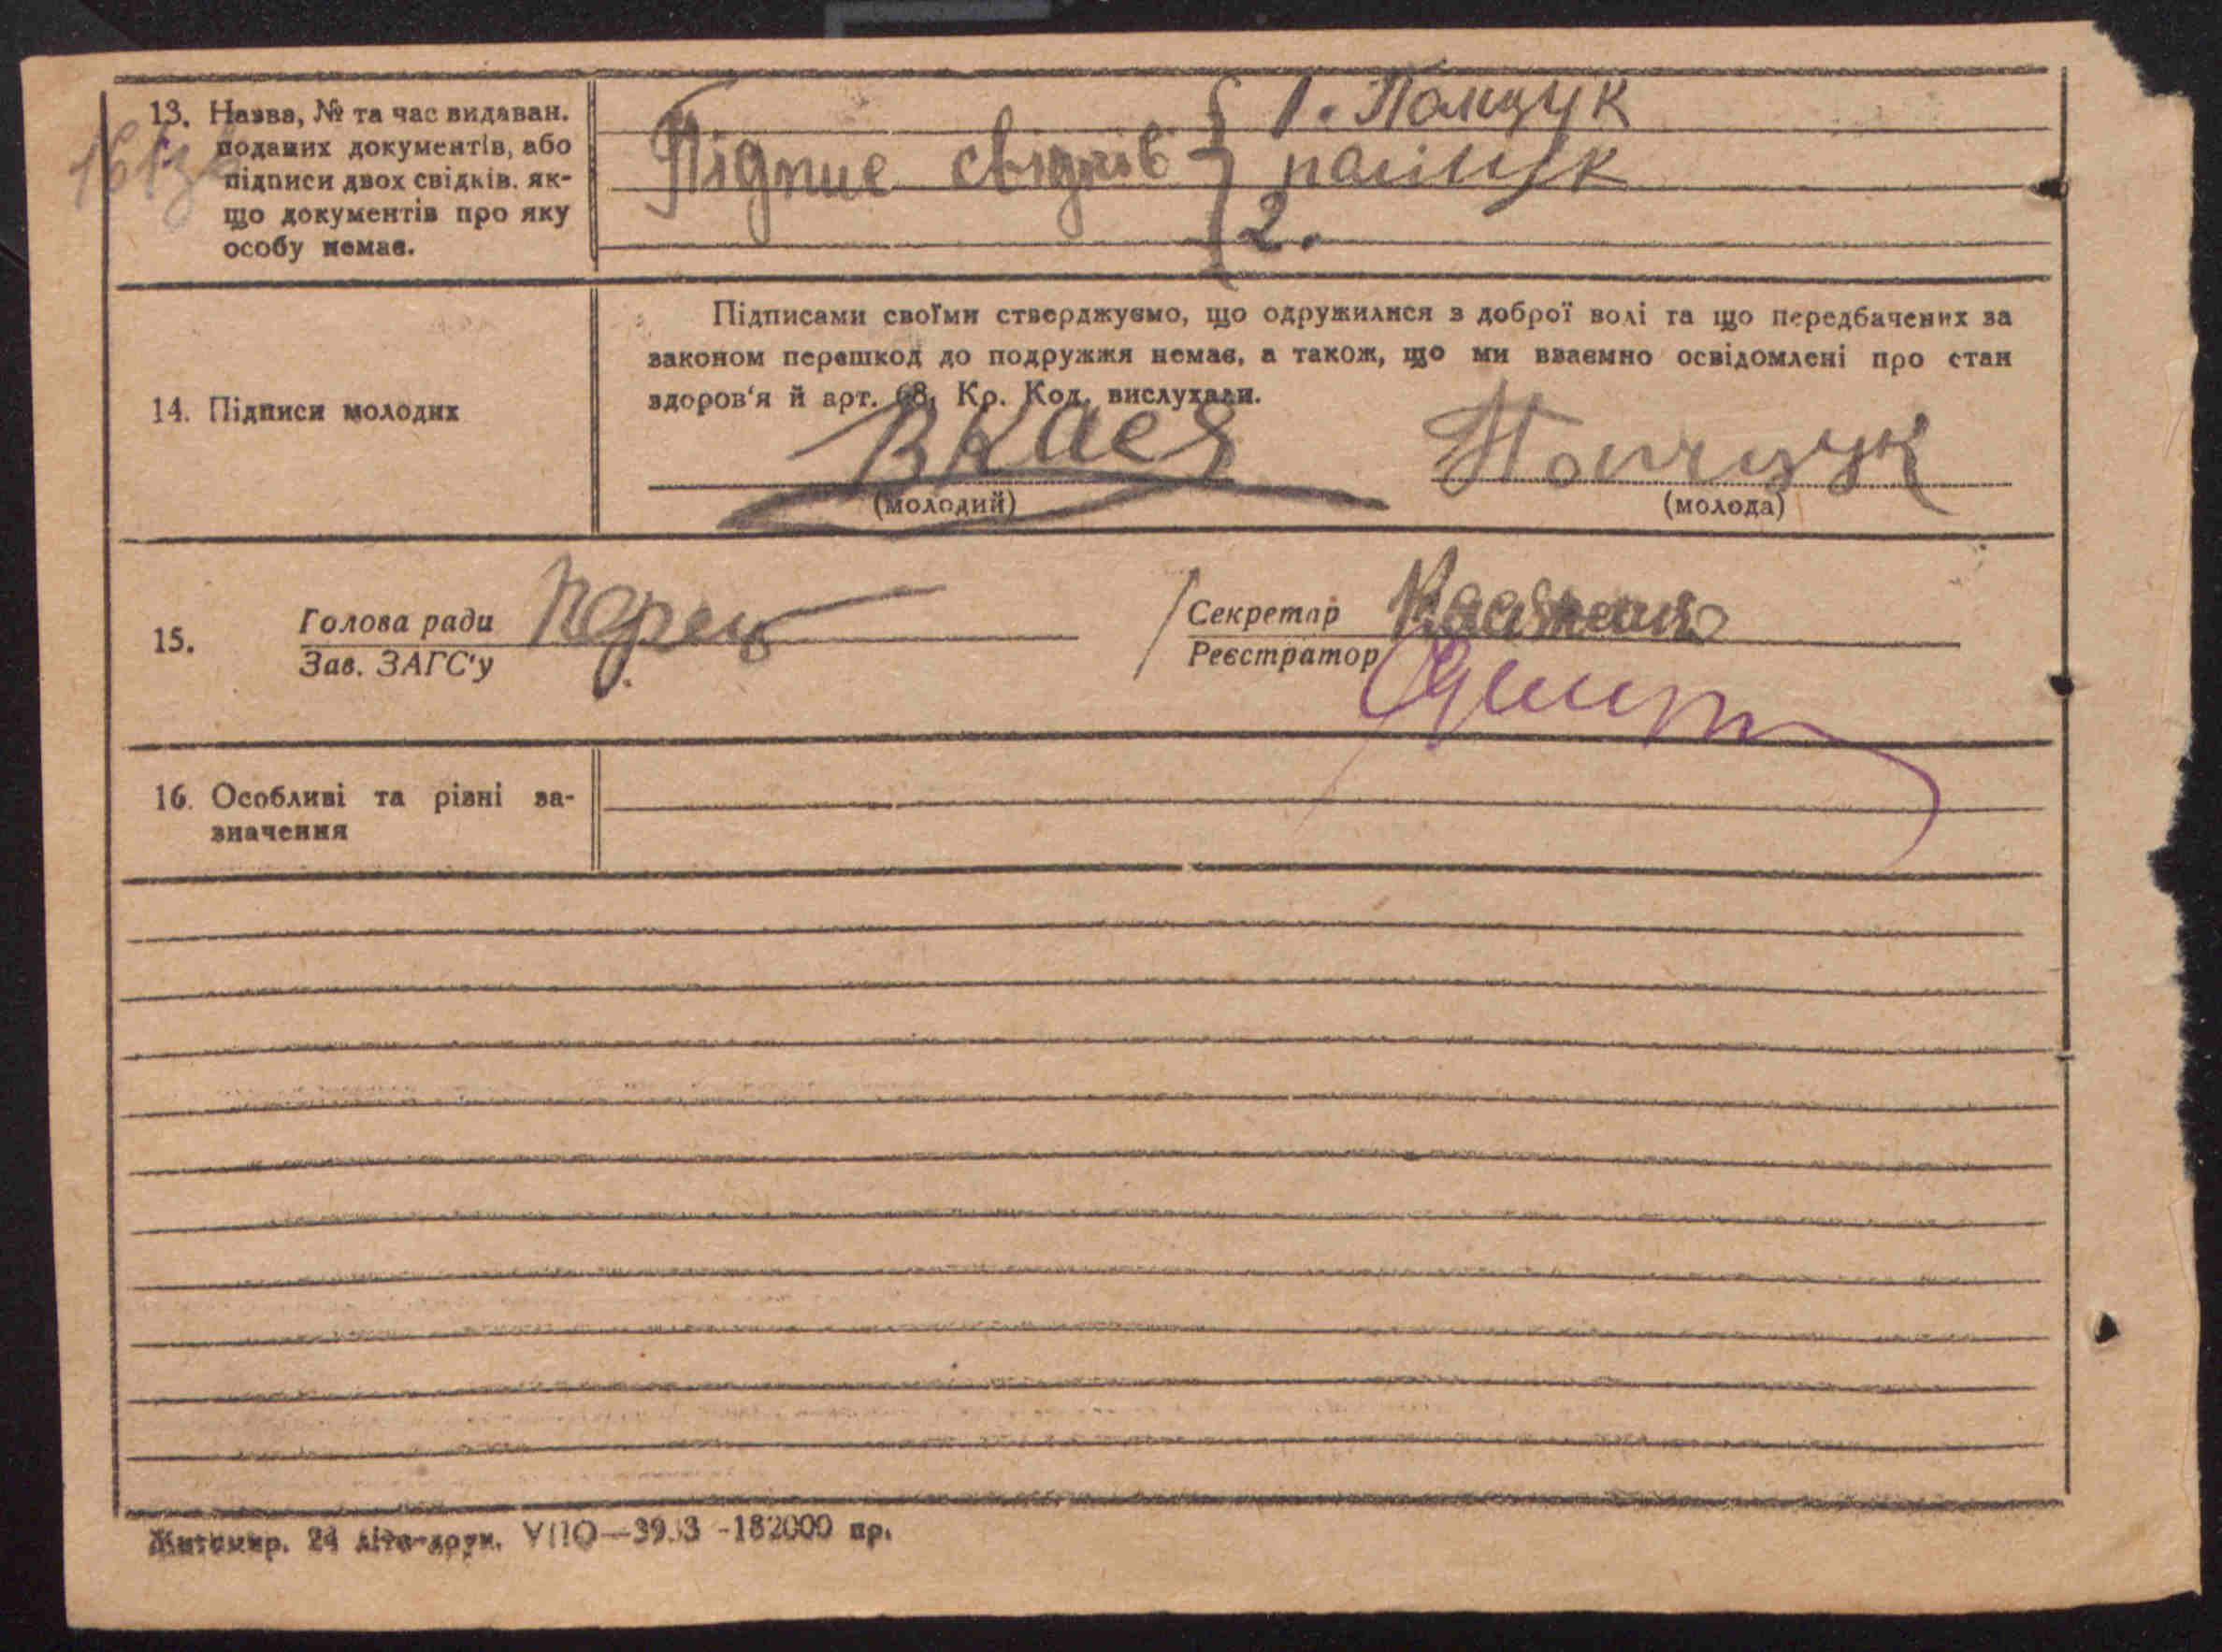 13. Назва, № та час видаван.
поданих документів, або
підписи двох свідків, як-
що документів про яку
особу немає.
Підпис свідків
1.
2.
14. Підписи молодих
Підписами своїми стверджуємо, що одружилися з доброї волі та що передбачених за
законом перешкод до подружжя немає, а також, що ми взаємно освідомлені про стан
здоров'я й арт. 68, Кр. Код, вислухали.
(молодий)
(молода)
15. Голова ради
Зав. ЗАГС'у
Секретар
Реєстратор
16. Особливі та різні за-
значення
Житомир. 24 літо-друк. -182000 пр.